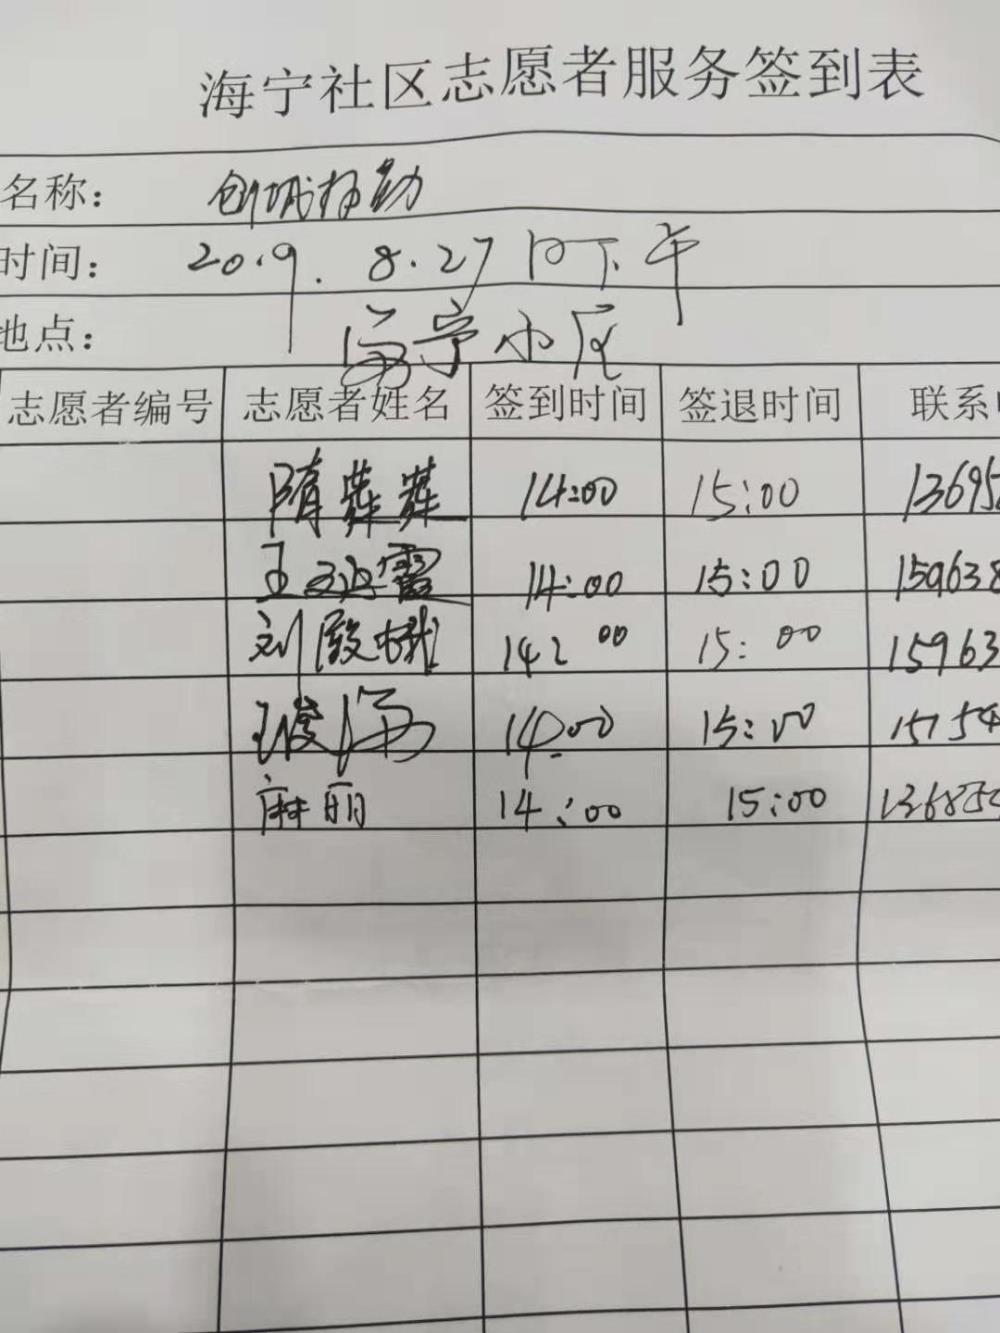 海宁社区志愿者服务签到表
名称： 创城执勤
时间： 2019.8.27日下午
地点： 海宁小区
志愿者编号 志愿者姓名 签到时间 签退时间 联系
隋 14:00 15:00 13695
王 霞 14:00 15:00 159638
刘殿娥 14:00 15:00 15963
王俊海 14:00 15:00 15154
麻丽 14:00 15:00 13685